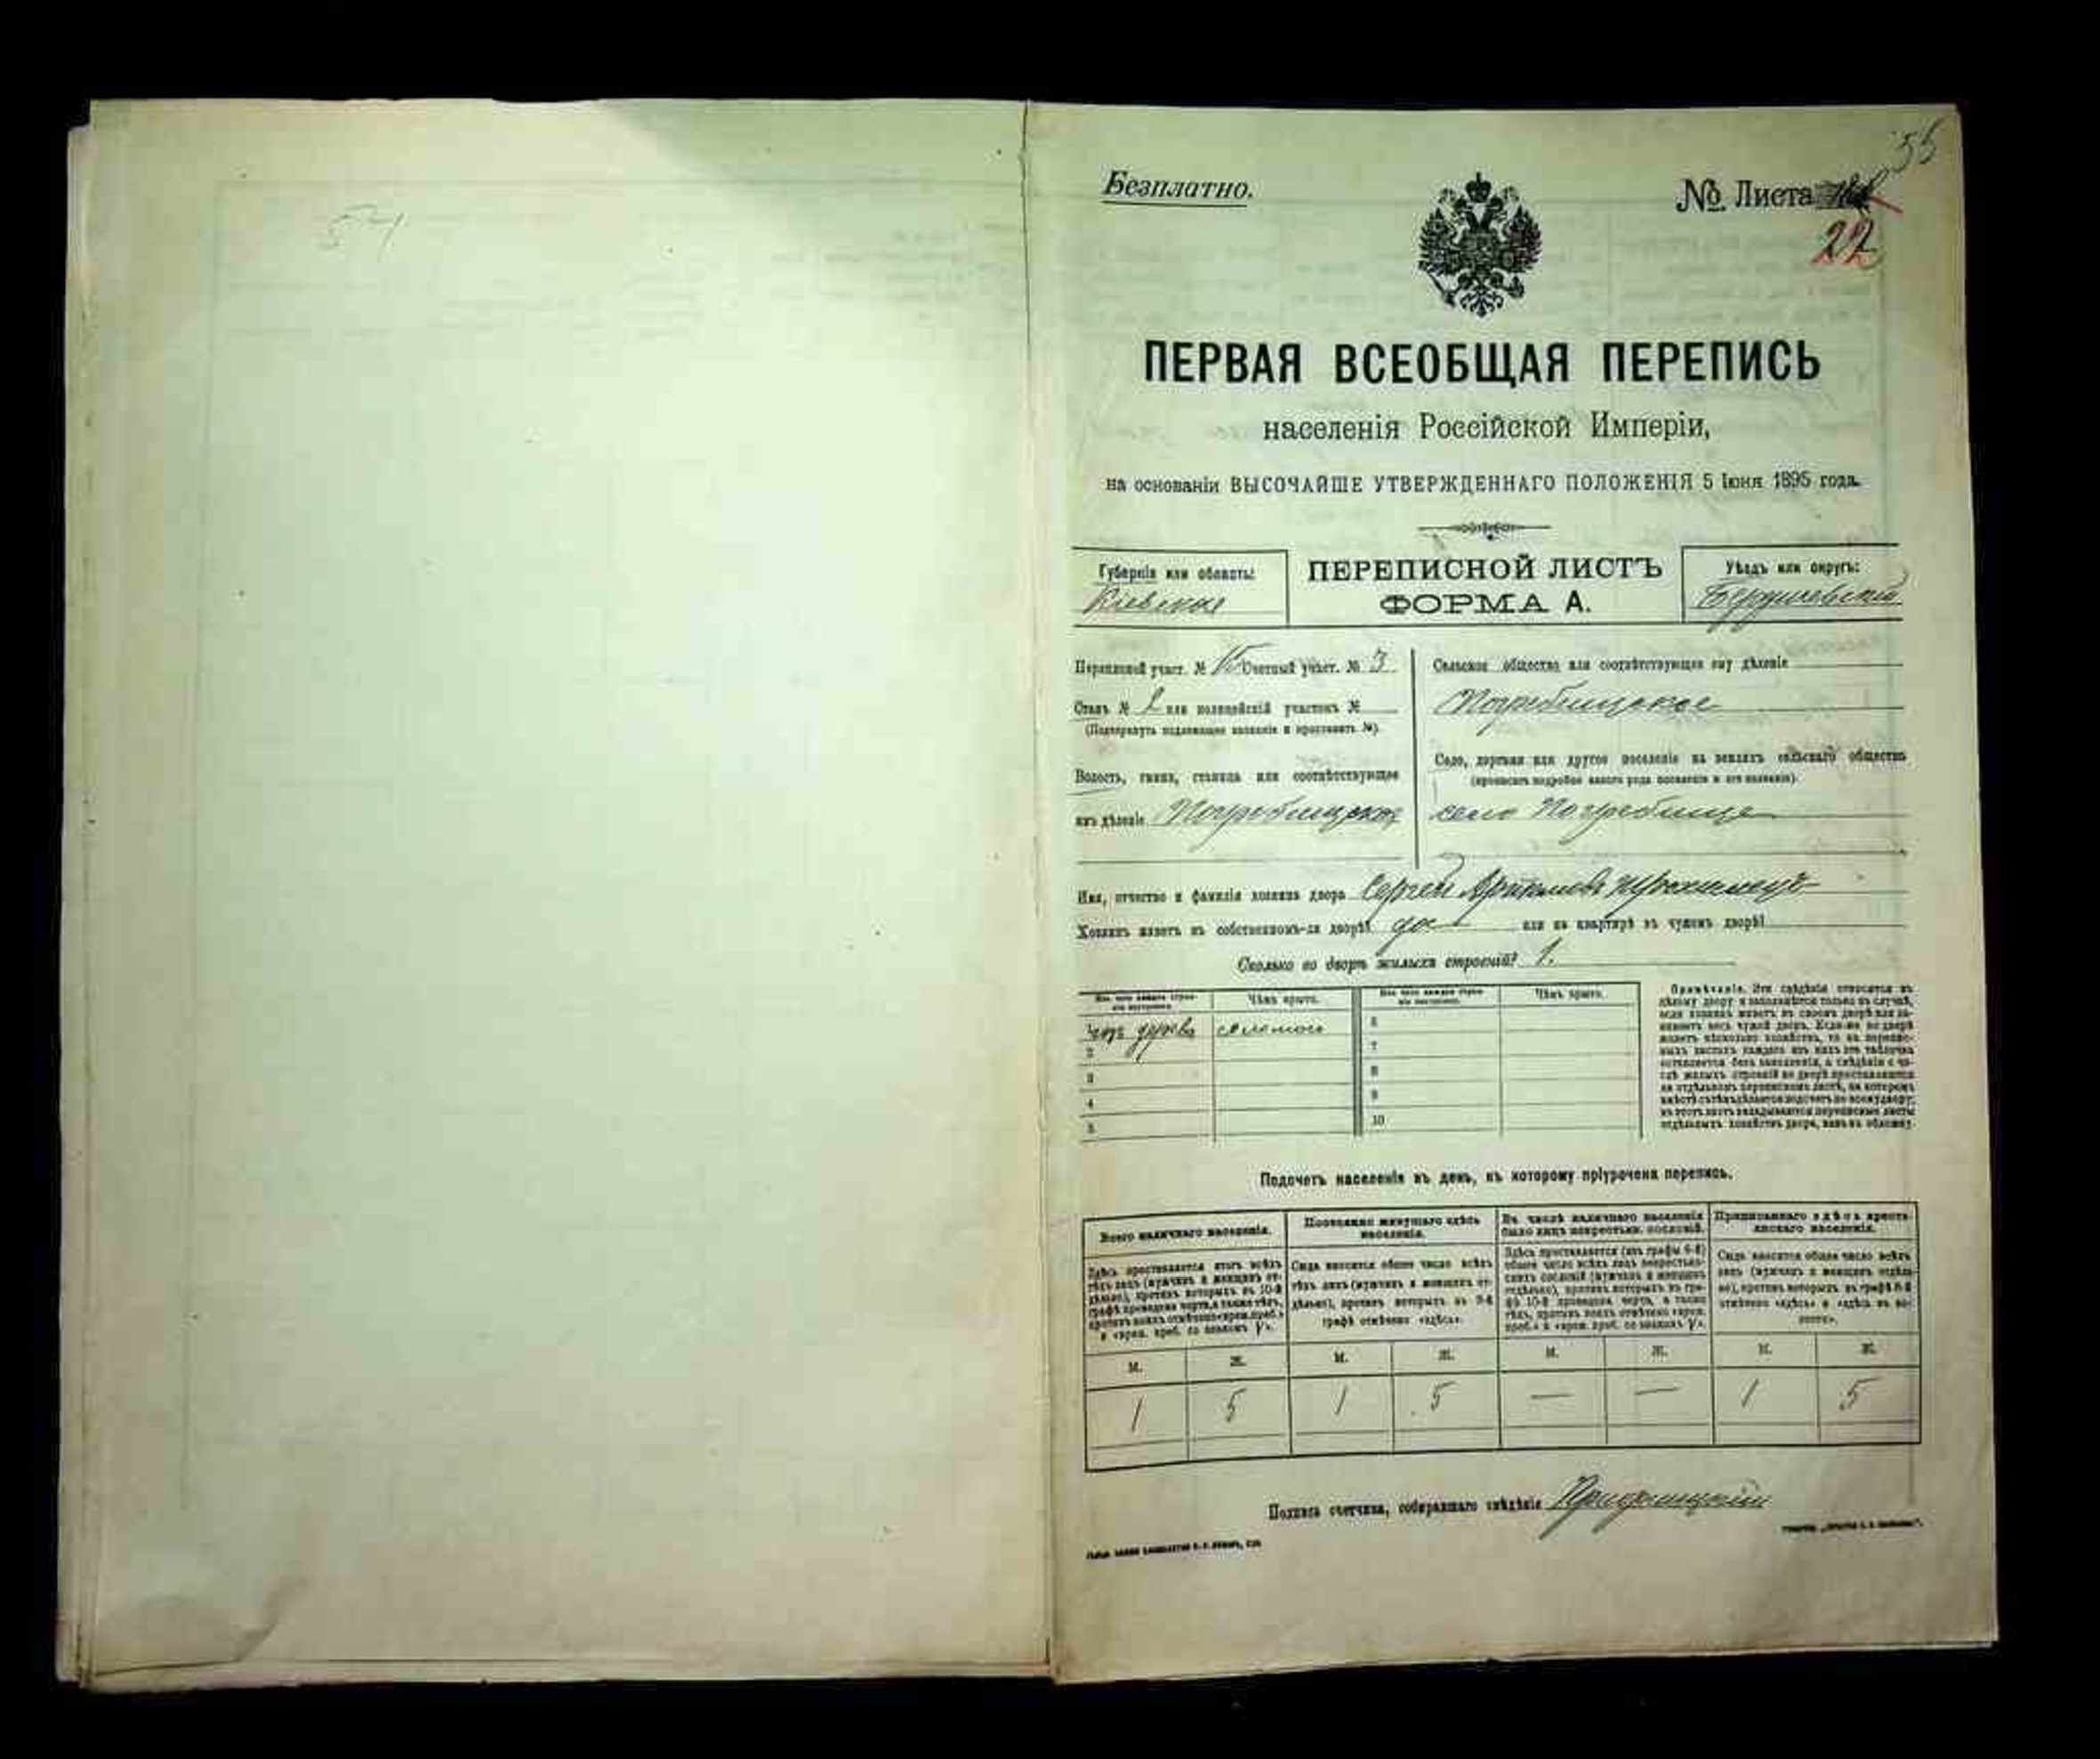 54
55
Безплатно.
№ Листа
22
ПЕРВАЯ ВСЕОБЩАЯ ПЕРЕПИСЬ
населенія Россійской Имперіи,
на основаніи ВЫСОЧАЙШЕ УТВЕРЖДЕННАГО ПОЛОЖЕНІЯ 5 Іюня 1895 года.
Губернія или область:
Кіевская
ПЕРЕПИСНОЙ ЛИСТЪ
ФОРМА А.
Уѣздъ или округъ:
Бердичевскій
Переписной участ. № 15 Счетный участ. № 3
Станъ № 2 или полицейскій участокъ №
(Подчеркнуть подлежащее названіе и проставить №).
Волость, гмина, станица или соотвѣтствующее
имъ дѣленіе Погребищская
Сельское общество или соотвѣтствующее ему дѣленіе
Погребищское
Село, деревня или другое поселеніе на земляхъ сельскаго общества
(прописать подробно какого рода поселеніе и его названіе).
село Погребище
Имя, отчество и фамилія хозяина двора Сергей
Хозяинъ живетъ въ собственномъ-ли дворѣ? да или на квартирѣ въ чужомъ дворѣ?
Сколько во дворѣ жилыхъ строеній? 1.
Изъ чего каждое строеніе выстроено.
Чѣмъ крыто.
Изъ чего каждое строеніе выстроено.
Чѣмъ крыто.
изъ дерева соломою 6
2 7
3 8
4 9
5 10
Примѣчаніе. Эти свѣдѣнія относятся къ
цѣлому двору и заполняются только въ случаѣ,
если хозяинъ живетъ въ своемъ дворѣ или за-
нимаетъ весь чужой дворъ. Если-же во дворѣ
живетъ нѣсколько хозяйствъ, то на перепис-
ныхъ листахъ каждаго изъ нихъ эта табличка
оставляется безъ заполненія, а свѣдѣнія о чи-
слѣ жилыхъ строеній во дворѣ проставляются
на отдѣльномъ переписномъ листѣ, на которомъ
вмѣстѣ съ тѣмъ дѣлается подсчетъ по всему двору;
въ этотъ листъ вкладываются переписные листы
отдѣльныхъ хозяйствъ двора, какъ въ обложку.
Подсчетъ населенія въ день, къ которому пріурочена перепись.
Всего наличнаго населенія.
Здѣсь проставляется итогъ всѣхъ
тѣхъ лицъ (мужчинъ и женщинъ от-
дѣльно), противъ которыхъ въ 10-й
графѣ проведена черта, а также тѣхъ,
противъ коихъ отмѣчено «врем. преб.»
и «врем. преб. со знакомъ V».
Постоянно живущаго здѣсь
населенія.
Сюда вносится общее число всѣхъ
тѣхъ лицъ (мужчинъ и женщинъ от-
дѣльно), противъ которыхъ въ 9-й
графѣ отмѣчено «здѣсь».
Въ числѣ наличнаго населенія
было лицъ некрестьян. сословій.
Здѣсь проставляется (изъ графы 6-й)
общее число всѣхъ лицъ некрестьян-
скихъ сословій (мужчинъ и женщинъ
отдѣльно), противъ которыхъ въ гра-
фѣ 10-й проведена черта, а также
тѣхъ, противъ коихъ отмѣчено «врем.
преб.» и «врем. преб. со знакомъ V».
Приписаннаго здѣсь кресть-
янскаго населенія.
Сюда вносится общее число всѣхъ
лицъ (мужчинъ и женщинъ отдѣль-
но), противъ которыхъ въ графѣ 8-й
отмѣчено «здѣсь» и «здѣсь въ во-
лости».
М. Ж. М. Ж. М. Ж. М. Ж.
1 5 1 5 — — 1 5
Подпись счетчика, собиравшаго свѣдѣнія